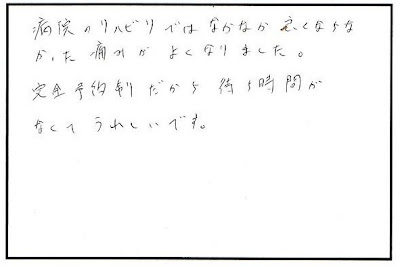 病院のリハビリではなかなか良くならな
かった痛みがよくなりました。
完全予約制だから待ち時間が
なくてうれしいです。